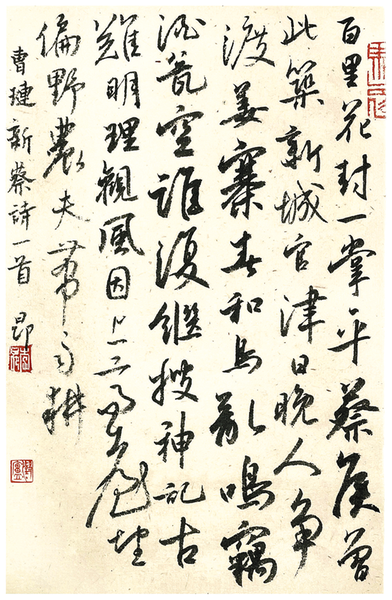 百里花封一掌平蔡侯曾
此築新城官津日晚人争
渡姜寨春和鳥亂鳴竊
酒甕空誰復繼搜神記古
難明理觀風因上望
偏野農夫帶雨耕
曹璉新蔡詩一首 昂